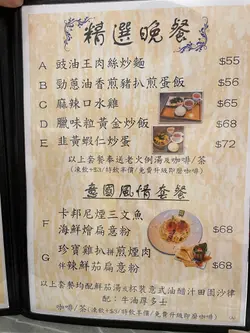 精選晚餐
A 豉油王肉絲炒麵 $55
B 勁蔥油香煎豬扒煎蛋飯 $56
C 麻辣口水雞 $65
D 臘味粒黃金炒飯 $68
E 韭黃蝦仁炒蛋 $72
以上套餐奉送老火例湯及咖啡/茶
(凍飲+$3/特飲半價/免費升級即磨咖啡)
意國風情套餐
F 卡邦尼煙三文魚
海鮮燴扁意粉 $68
G 珍寶雞扒拼煎煙肉
伴辣鮮茄扁意粉 $68
以上套餐均配鮮茄湯或杯裝意式油醋汁田園沙律
配：牛油厚多士
咖啡/茶(凍飲+$3/特飲半價/免費升級即磨咖啡)